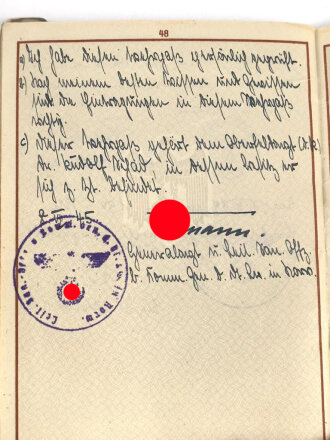 48
a) Ich habe diesen Wehrpaß persönlich geprüft.
b) Nach meinem besten Wissen und Gewissen
sind die Eintragungen in diesem Wehrpaß
richtig.
c) Dieser Wehrpaß gehört dem Oberfeldarzt
Dr. Rudolf in dessen Besitz er
sich z. Zt. befindet.
45
mann.
Generalarzt u. Leit. San. Offz.
b. Komm. Gen. d. dt. in Norw.
Leit. San. in Norw.